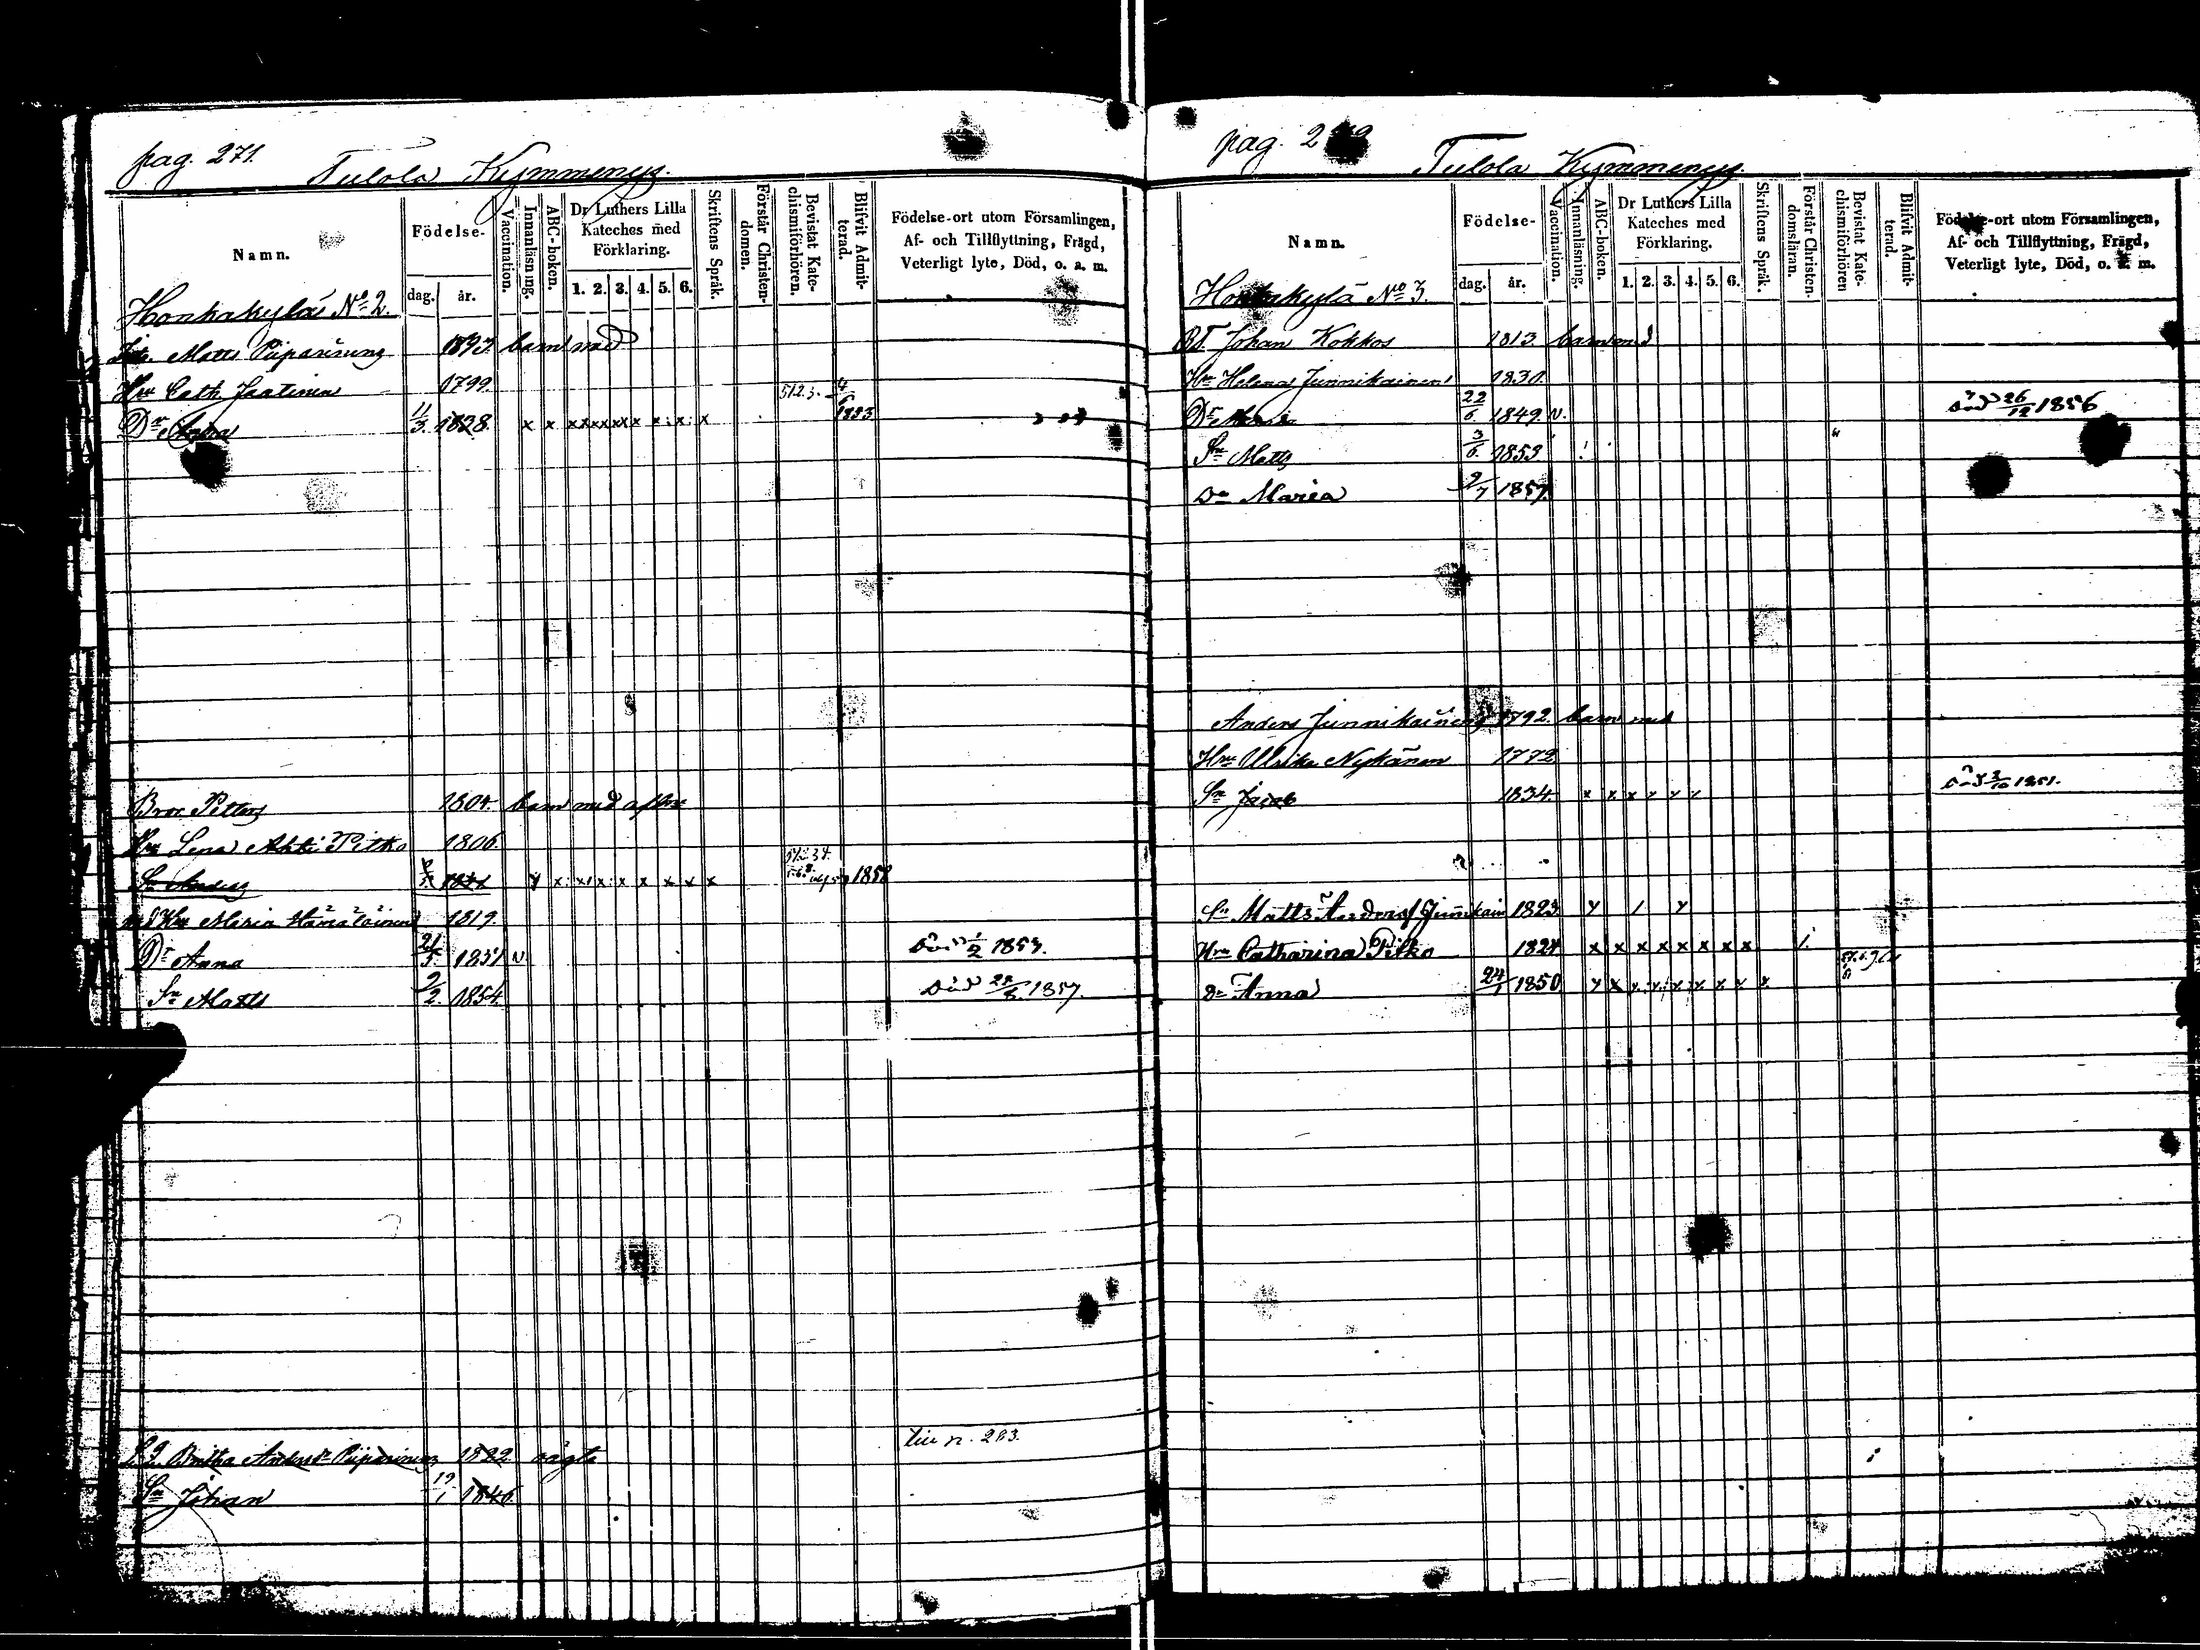 pag. 271.
Tulola Kymmenys.
Namn.
Födelse-
dag.
år.
Vaccination.
Innanläsning.
ABC-boken.
Dr Luthers Lilla Kateches med Förklaring.
1. 2. 3. 4. 5. 6.
Skriftens Språk.
Förstår Christendomen.
Bevistat Katechismiförhören.
Blifvit Admitterad.
Födelse-ort utom Församlingen,
Af- och Tillflyttning, Frägd,
Veterligt lyte, Död, o. a. m.
Honkakylä No 2.
Matts Piiparinens barn med
Hru Cath. Jaatinen 1799.
Dr Anna 11/3. 1828. x x x x x x x x x x x 1853
Bror Petters 1804. barn med
Hru Lena Ahti Pitko 1806.
Sn Anders x x x x x x x x 1858
Hru Maria Hämäläinen 1819.
Dr Anna 21/5. 1851 N. Död 1/2 1853.
Sn Matts 9/2. 1854. Död 1857.
Britha Andersdr Piiparinens 1822
Sn Johan 19/1 1846.
pag. 2
Tulola Kymmenys.
Namn.
Födelse-
dag.
år.
Vaccination.
Innanläsning.
ABC-boken.
Dr Luthers Lilla Kateches med Förklaring.
1. 2. 3. 4. 5. 6.
Skriftens Språk.
Förstår Christendomsläran.
Bevistat Katechismiförhören
Blifvit Admitterad.
Födelse-ort utom Församlingen,
Af- och Tillflyttning, Frägd,
Veterligt lyte, Död, o. a. m.
Honkakylä No 3.
Johan Kokkos 1813. barn med
Hru Helena Junnikainen 1830.
Dr Maria 22/6 1849. N. Död 26/12 1856
Sn Matts 3/6 1853
Dr Maria 2/7 1857.
Anders Junnikainens 1792. barn med
Hru Ulrika Nykänen 1772
Sn Jacob 1834. x x x x x x 1851.
Sn Matts Anders Junnikain 1823.
Hru Catharina Pitko 1824. x x x x x x x x
Dr Anna 24/1 1850